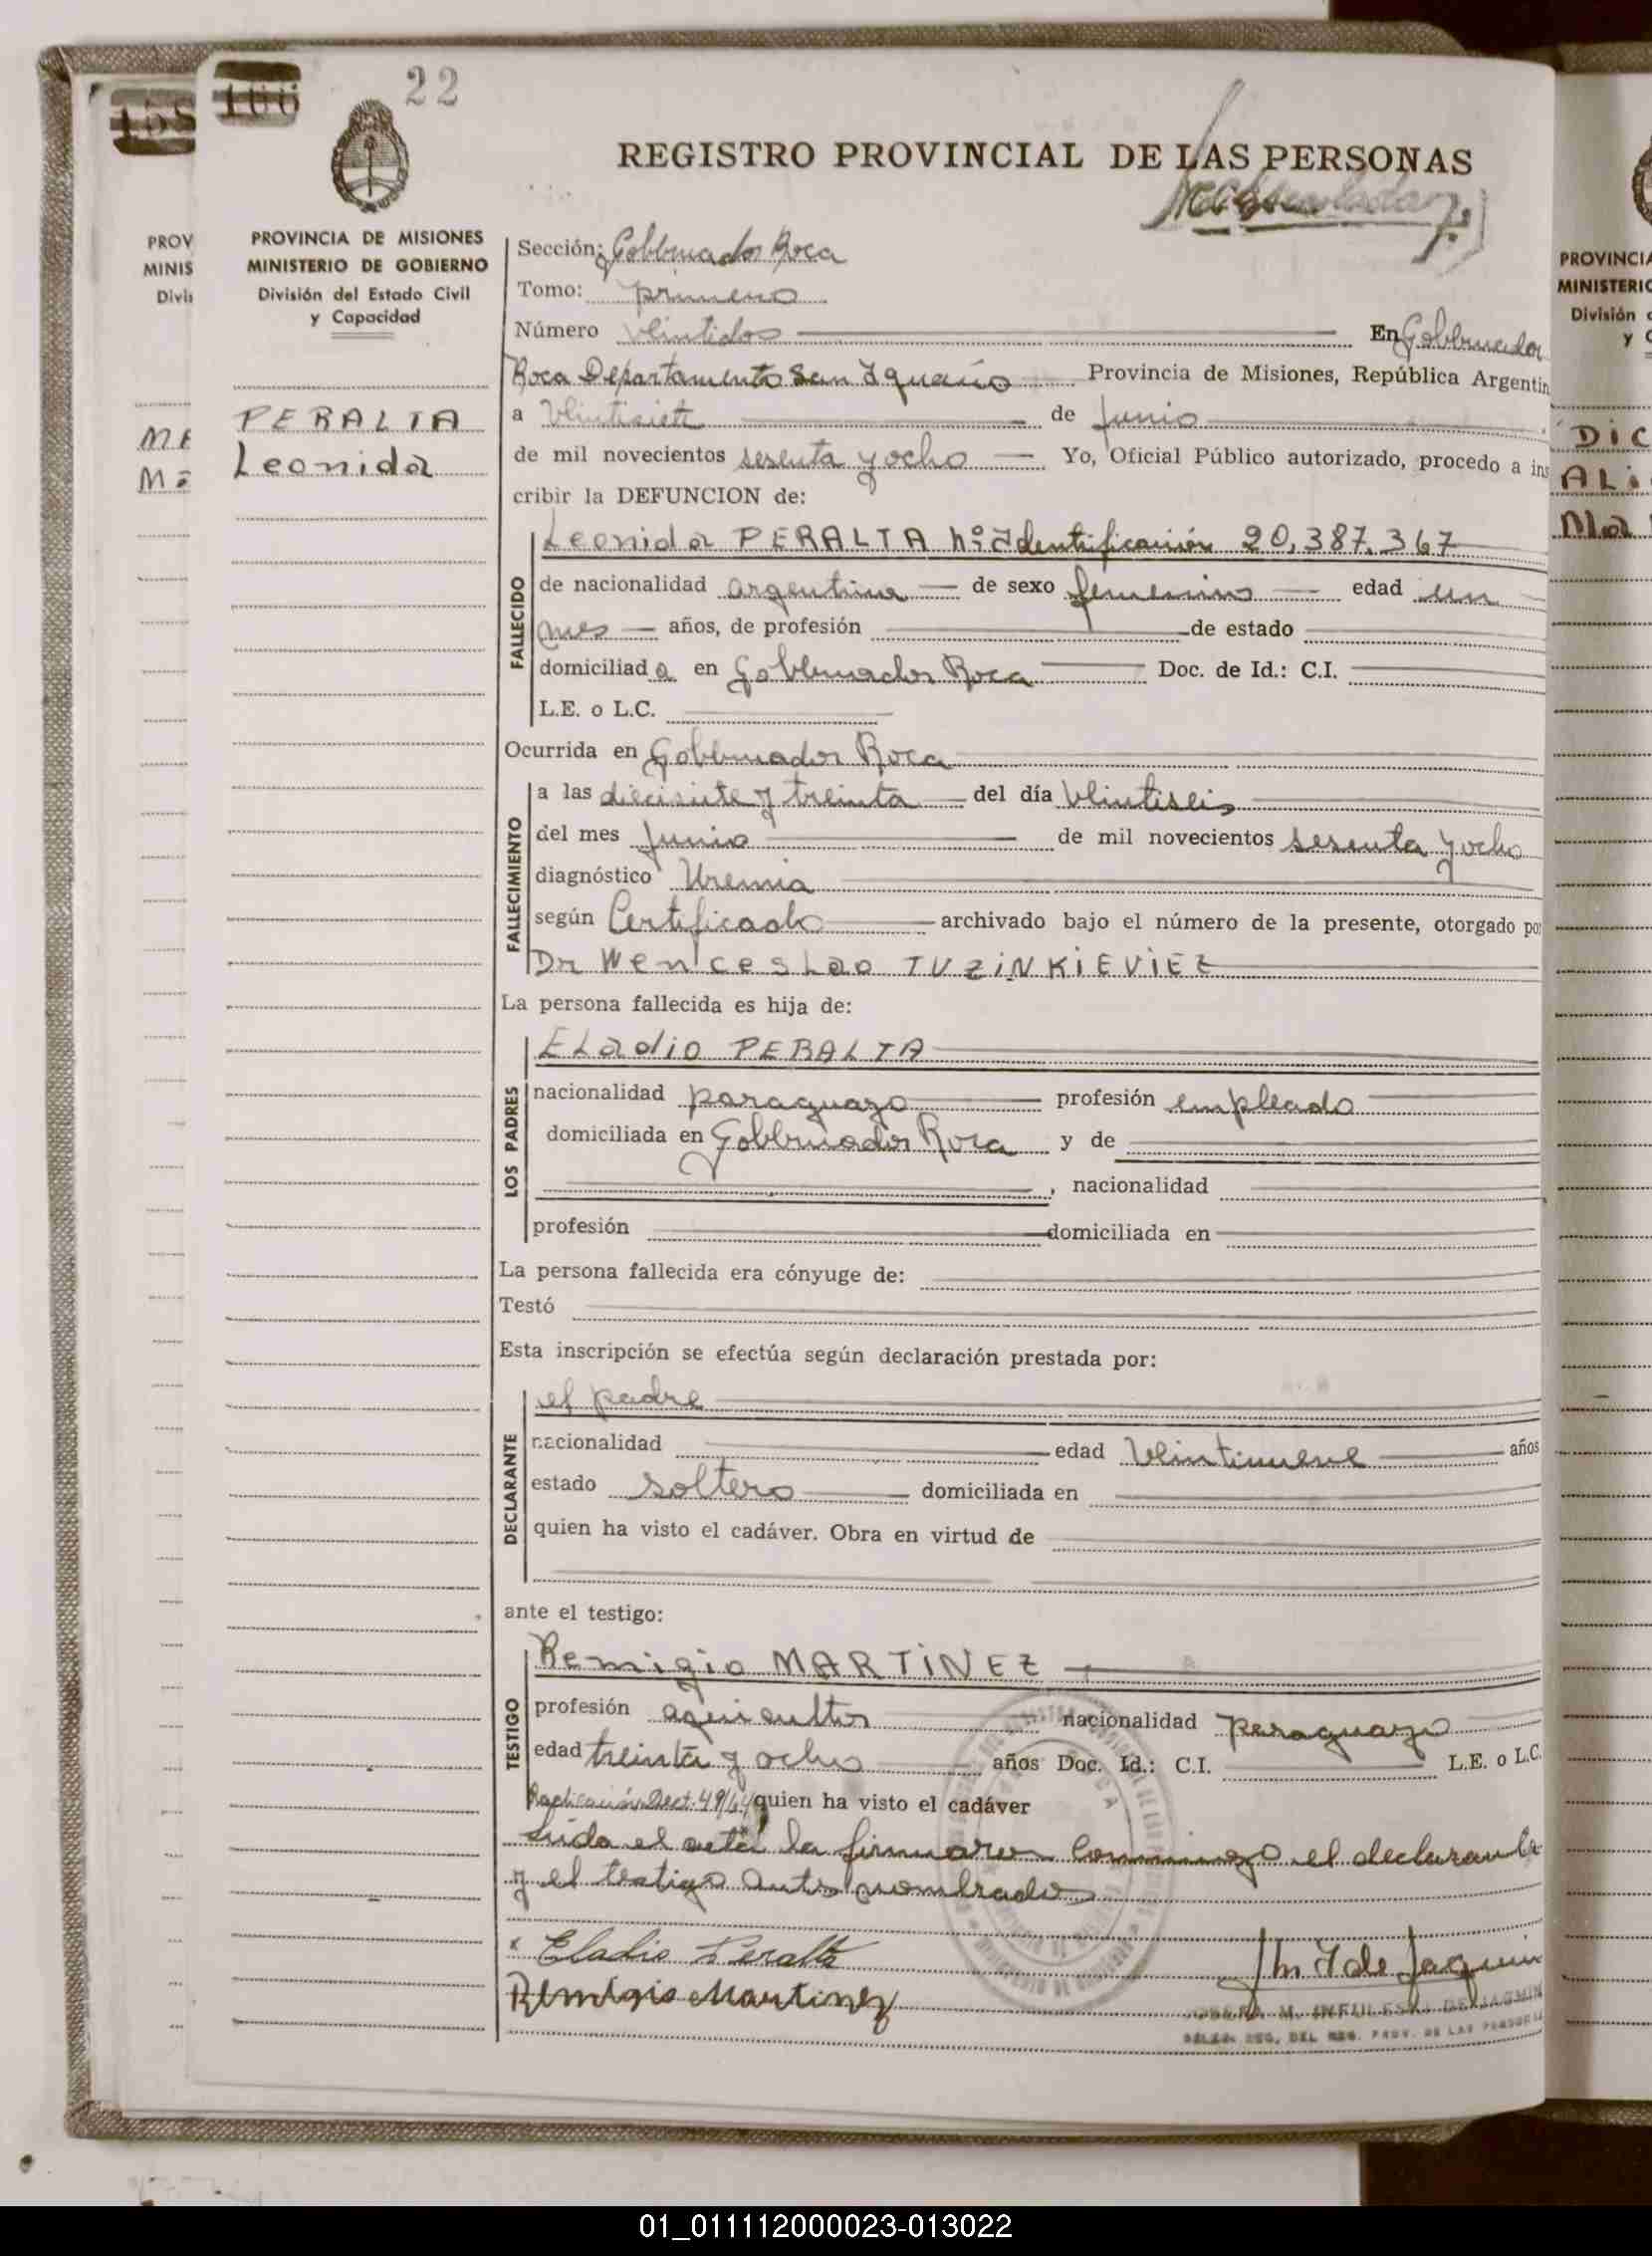 22
REGISTRO PROVINCIAL DE LAS PERSONAS
PROV
MINIS
PROVINCIA DE MISIONES
MINISTERIO DE GOBIERNO
División del Estado Civil
y Capacidad
PERALTA
Leonida
Sección: Gobernador Roca
Tomo: primero
Número veintidos En Gobernador
Roca Departamento San Ignacio Provincia de Misiones, República Argentin
a veintisiete de junio
de mil novecientos sesenta y ocho Yo, Oficial Público autorizado, procedo a ins
cribir la DEFUNCION de:
FALLECIDO
Leonida PERALTA nº identificación 20,387.367
de nacionalidad argentina de sexo femenino edad un
mes años, de profesión de estado
domiciliad a en Gobernador Roca Doc. de Id.: C.I.
L.E. o L.C.
Ocurrida en Gobernador Roca
FALLECIMIENTO
a las diecisiete y treinta del día veintiseis
del mes junio de mil novecientos sesenta y ocho
diagnóstico Uremia
según Certificado archivado bajo el número de la presente, otorgado por
Dr Wenceslao TUZINKIEVIEZ
La persona fallecida es hija de:
LOS PADRES
Eladio PERALTA
nacionalidad paraguayo profesión empleado
domiciliada en Gobernador Roca y de
, nacionalidad
profesión domiciliada en
La persona fallecida era cónyuge de:
Testó
Esta inscripción se efectúa según declaración prestada por:
DECLARANTE
el padre
nacionalidad edad veintinueve años
estado soltero domiciliada en
quien ha visto el cadáver. Obra en virtud de
ante el testigo:
TESTIGO
Remigio MARTINEZ
profesión agricultor nacionalidad paraguayo
edad treinta y ocho años Doc. Id.: C.I. L.E. o L.C.
quien ha visto el cadáver
Leida el acta la firmaron conmigo el declarante
y el testigo antes nombrado
x Eladio Peralta
Remigio Martinez
PROVINCIA
MINISTERIO
División d
DIC
ALi
Ma
01_011112000023-013022